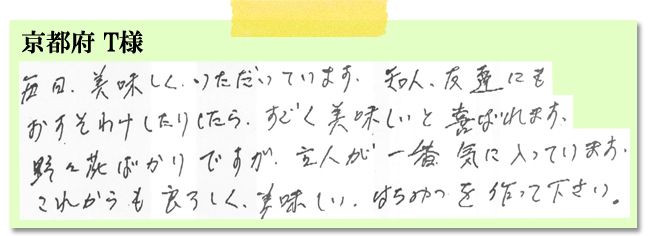 京都府 T様
毎日、美味しく、いただいています。知人、友達にも
おすそわけしたりしたら、すごく美味しいと喜ばれます。
野々花ばかりですが、主人が一番気に入っています。
これからも良ろしく、美味しい、はちみつを作って下さい。